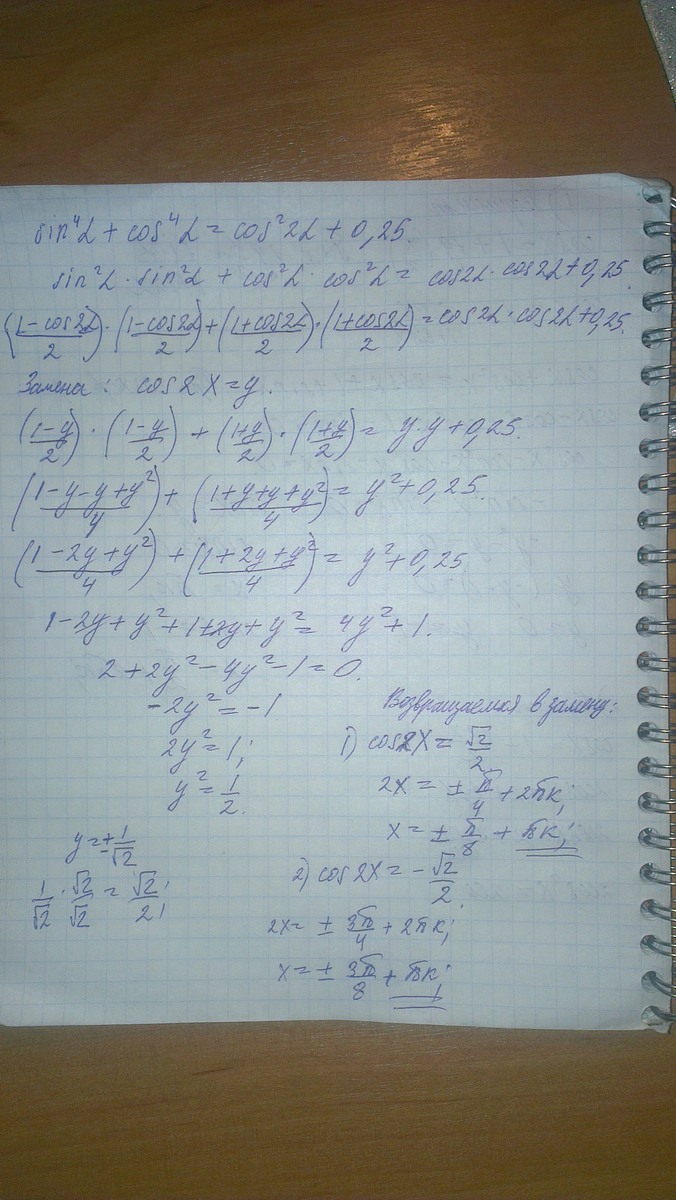 sin⁴α + cos⁴α = cos²2α + 0,25.
sin²α · sin²α + cos²α · cos²α = cos2α · cos2α + 0,25.
((1-cos2α)/2) · ((1-cos2α)/2) + ((1+cos2α)/2) · ((1+cos2α)/2) = cos2α · cos2α + 0,25.
Замена: cos2x = y.
((1-y)/2) · ((1-y)/2) + ((1+y)/2) · ((1+y)/2) = y·y + 0,25.
((1-y-y+y²)/4) + ((1+y+y+y²)/4) = y² + 0,25.
((1-2y+y²)/4) + ((1+2y+y²)/4) = y² + 0,25
1-2y+y²+1+2y+y² = 4y²+1.
2+2y²-4y²-1=0.
-2y² = -1
2y² = 1;
y² = 1/2.
y = ± 1/√2
1/√2 · √2/√2 = √2/2;
Возвращаемся в замену:
1) cos2x = √2/2.
2x = ± π/4 + 2πк;
x = ± π/8 + πк;
2) cos2x = - √2/2.
2x = ± 3π/4 + 2πк;
x = ± 3π/8 + πк;